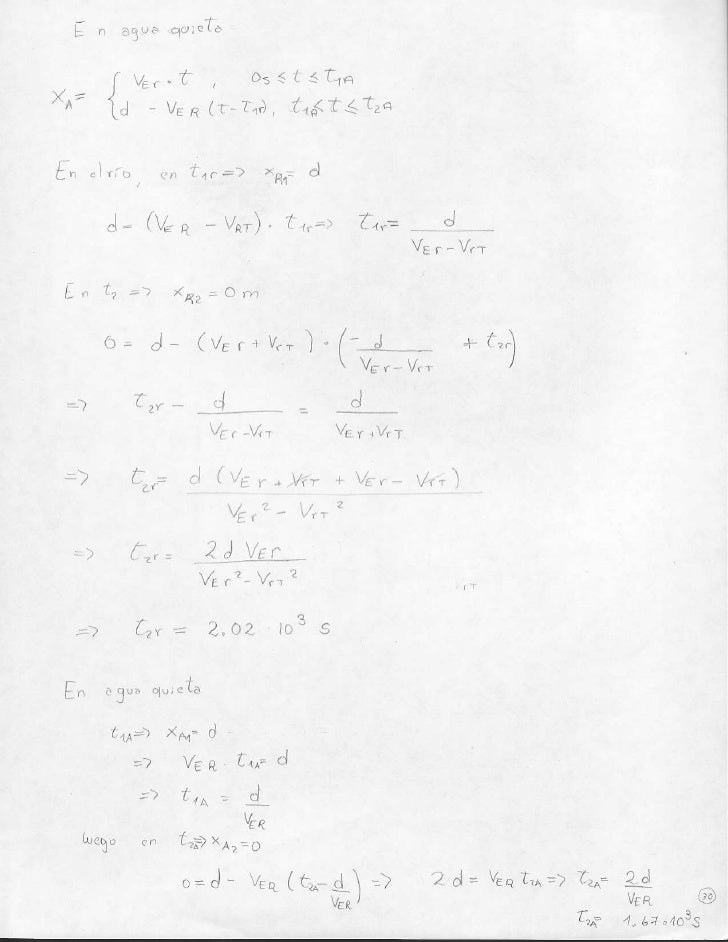 En agua quieta
x_A = { V_Er · t , 0s ≤ t ≤ t_1A
d - V_ER (t - t_1A), t_1A ≤ t ≤ t_2A
En el río, en t_1r => x_R1 = d
d = (V_ER - V_RT) · t_1r => t_1r = d / (V_Er - V_rT)
En t_2 => x_R2 = 0 m
0 = d - (V_Er + V_rT) · (- d / (V_Er - V_rT) + t_2r)
=> t_2r - d / (V_Er - V_rT) = d / (V_Er + V_rT)
=> t_2r = d (V_Er + V_rT + V_Er - V_rT) / (V_Er² - V_rT²)
=> t_2r = 2d V_Er / (V_Er² - V_rT²)
rT
=> t_2r = 2.02 · 10³ s
En agua quieta
t_1A => x_A1 = d
=> V_ER · t_1A = d
=> t_1A = d / V_ER
luego en t_2A => x_A2 = 0
0 = d - V_ER (t_2A - d / V_ER) => 2d = V_ER t_2A => t_2A = 2d / V_ER
t_2A = 1.67 · 10³ s
30